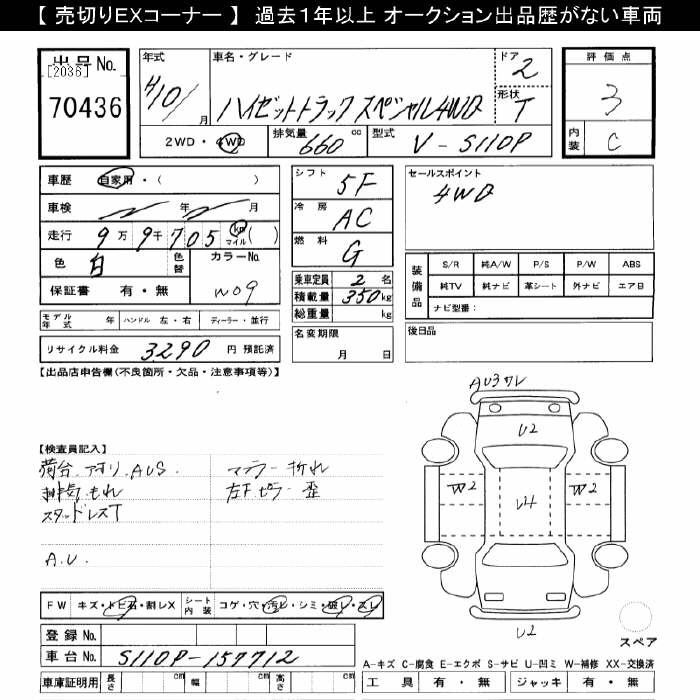 【 売切りEXコーナー 】 過去1年以上 オークション出品歴がない車両
出品No.
[2036]
70436
年式
H10/月
車名・グレード
ハイゼットトラックスペシャル4WD
ドア
2
形状
T
評価点
3
内装
C
2WD・4WD
排気量
660 cc
型式
V-S110P
車歴 自家用・( )
車検 年 月
走行 9万 9千 705 km マイル( )
色 白 色替 カラーNo.
W09
保証書 有・無
シフト
5F
冷房
AC
燃料
G
乗車定員 2 名
積載量 350 kg
総重量 kg
名変期限
月 日
セールスポイント
4WD
装備品
S/R 純A/W P/S P/W ABS
純TV 純ナビ 革シート 外ナビ エアB
ナビ型番:
後日品
モデル年式 年 ハンドル 左・右 ディーラー・並行
リサイクル料金 3290 円 預託済
【出品店申告欄(不良箇所・欠品・注意事項等)】
【検査員記入】
荷台 アオリ AUS.
排気もれ
スタッドレスT
A.U.
マフラー折れ
左Fピラー歪
AU3サビ
U2
W2
U4
W2
U2
スペア
FW キズ・トビ石・割レX シート内装 コゲ・穴・汚レ・シミ・破レ・スレ
登録No.
車台No. S110P-157712
車庫証明用 長さ cm 幅 cm 高さ cm
A-キズ C-腐食 E-エクボ S-サビ U-凹ミ W-補修 XX-交換済
工具 有・無 ジャッキ 有・無